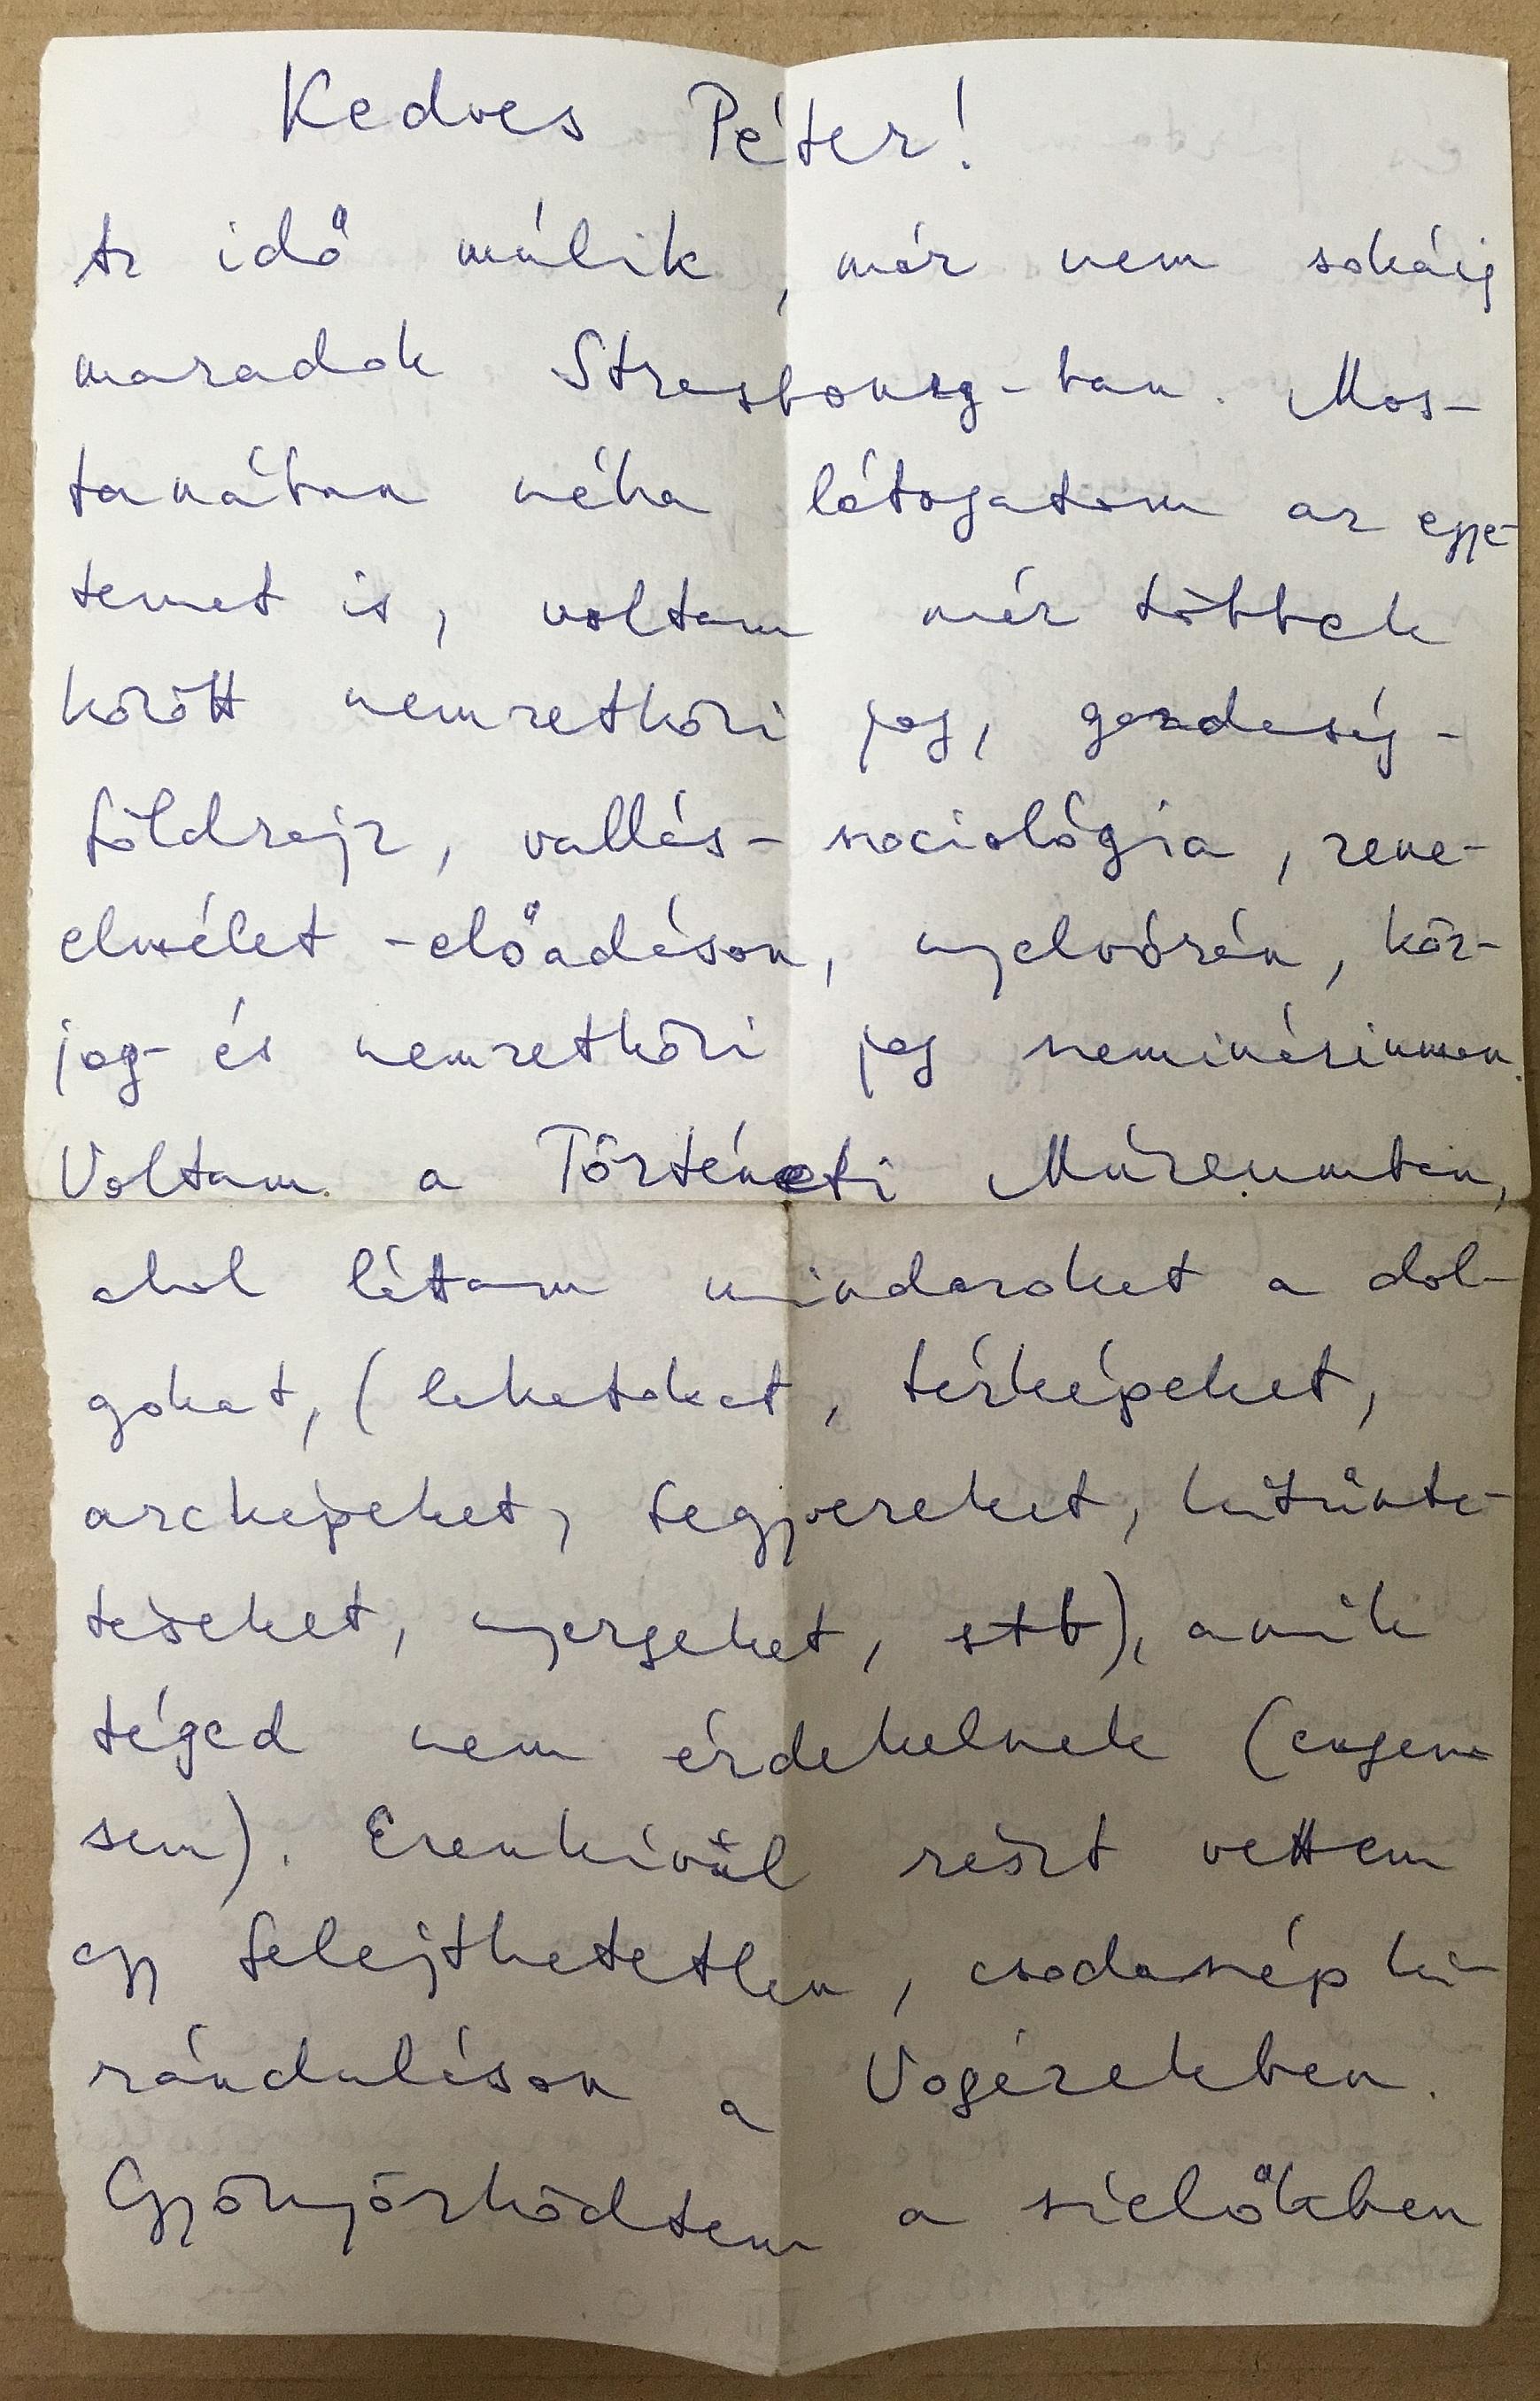 Kedves Péter!
Az idő múlik, már nem sokáig
maradok Strasbourg-ban. Mos-
tanában néha látogatom az egye-
temet is, voltam már többek
között nemzetközi jog, gazdaság-
földrajz, vallás-szociológia, zene-
elmélet-előadáson, nyelvórán, köz-
jog- és nemzetközi jog szemináriumon.
Voltam a Történeti Múzeumban,
ahol láttam mindazokat a dol-
gokat, (lakatokat, térképeket,
arcképeket, fegyvereket, kitünte-
téseket, nyergeket, stb), amik
téged nem érdekelnek (engem
sem). Ezenkívül részt vettem
egy felejthetetlen, csodaszép ki-
ránduláson a Vogézekben.
Gyönyörködtem a síelőkben